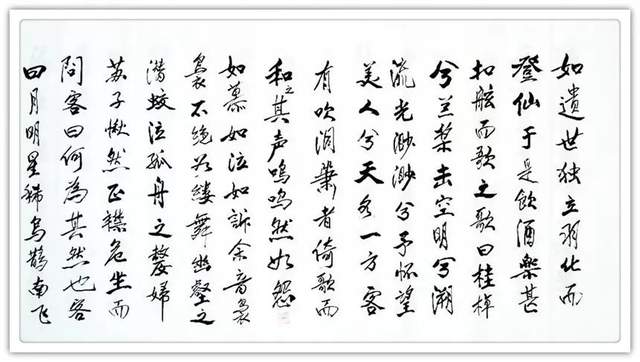 如遗世独立羽化而
登仙于是饮酒樂甚
扣舷而歌之歌曰桂棹
兮兰桨击空明兮溯
流光渺渺兮予怀望
美人兮天各一方客
有吹洞箫者倚歌而
和之其声呜呜然如怨
如慕如泣如訴余音袅
袅不绝如缕舞幽壑之
潜蛟泣孤舟之嫠婦
苏子愀然正襟危坐而
问客曰何為其然也客
曰月明星稀乌鹊南飞